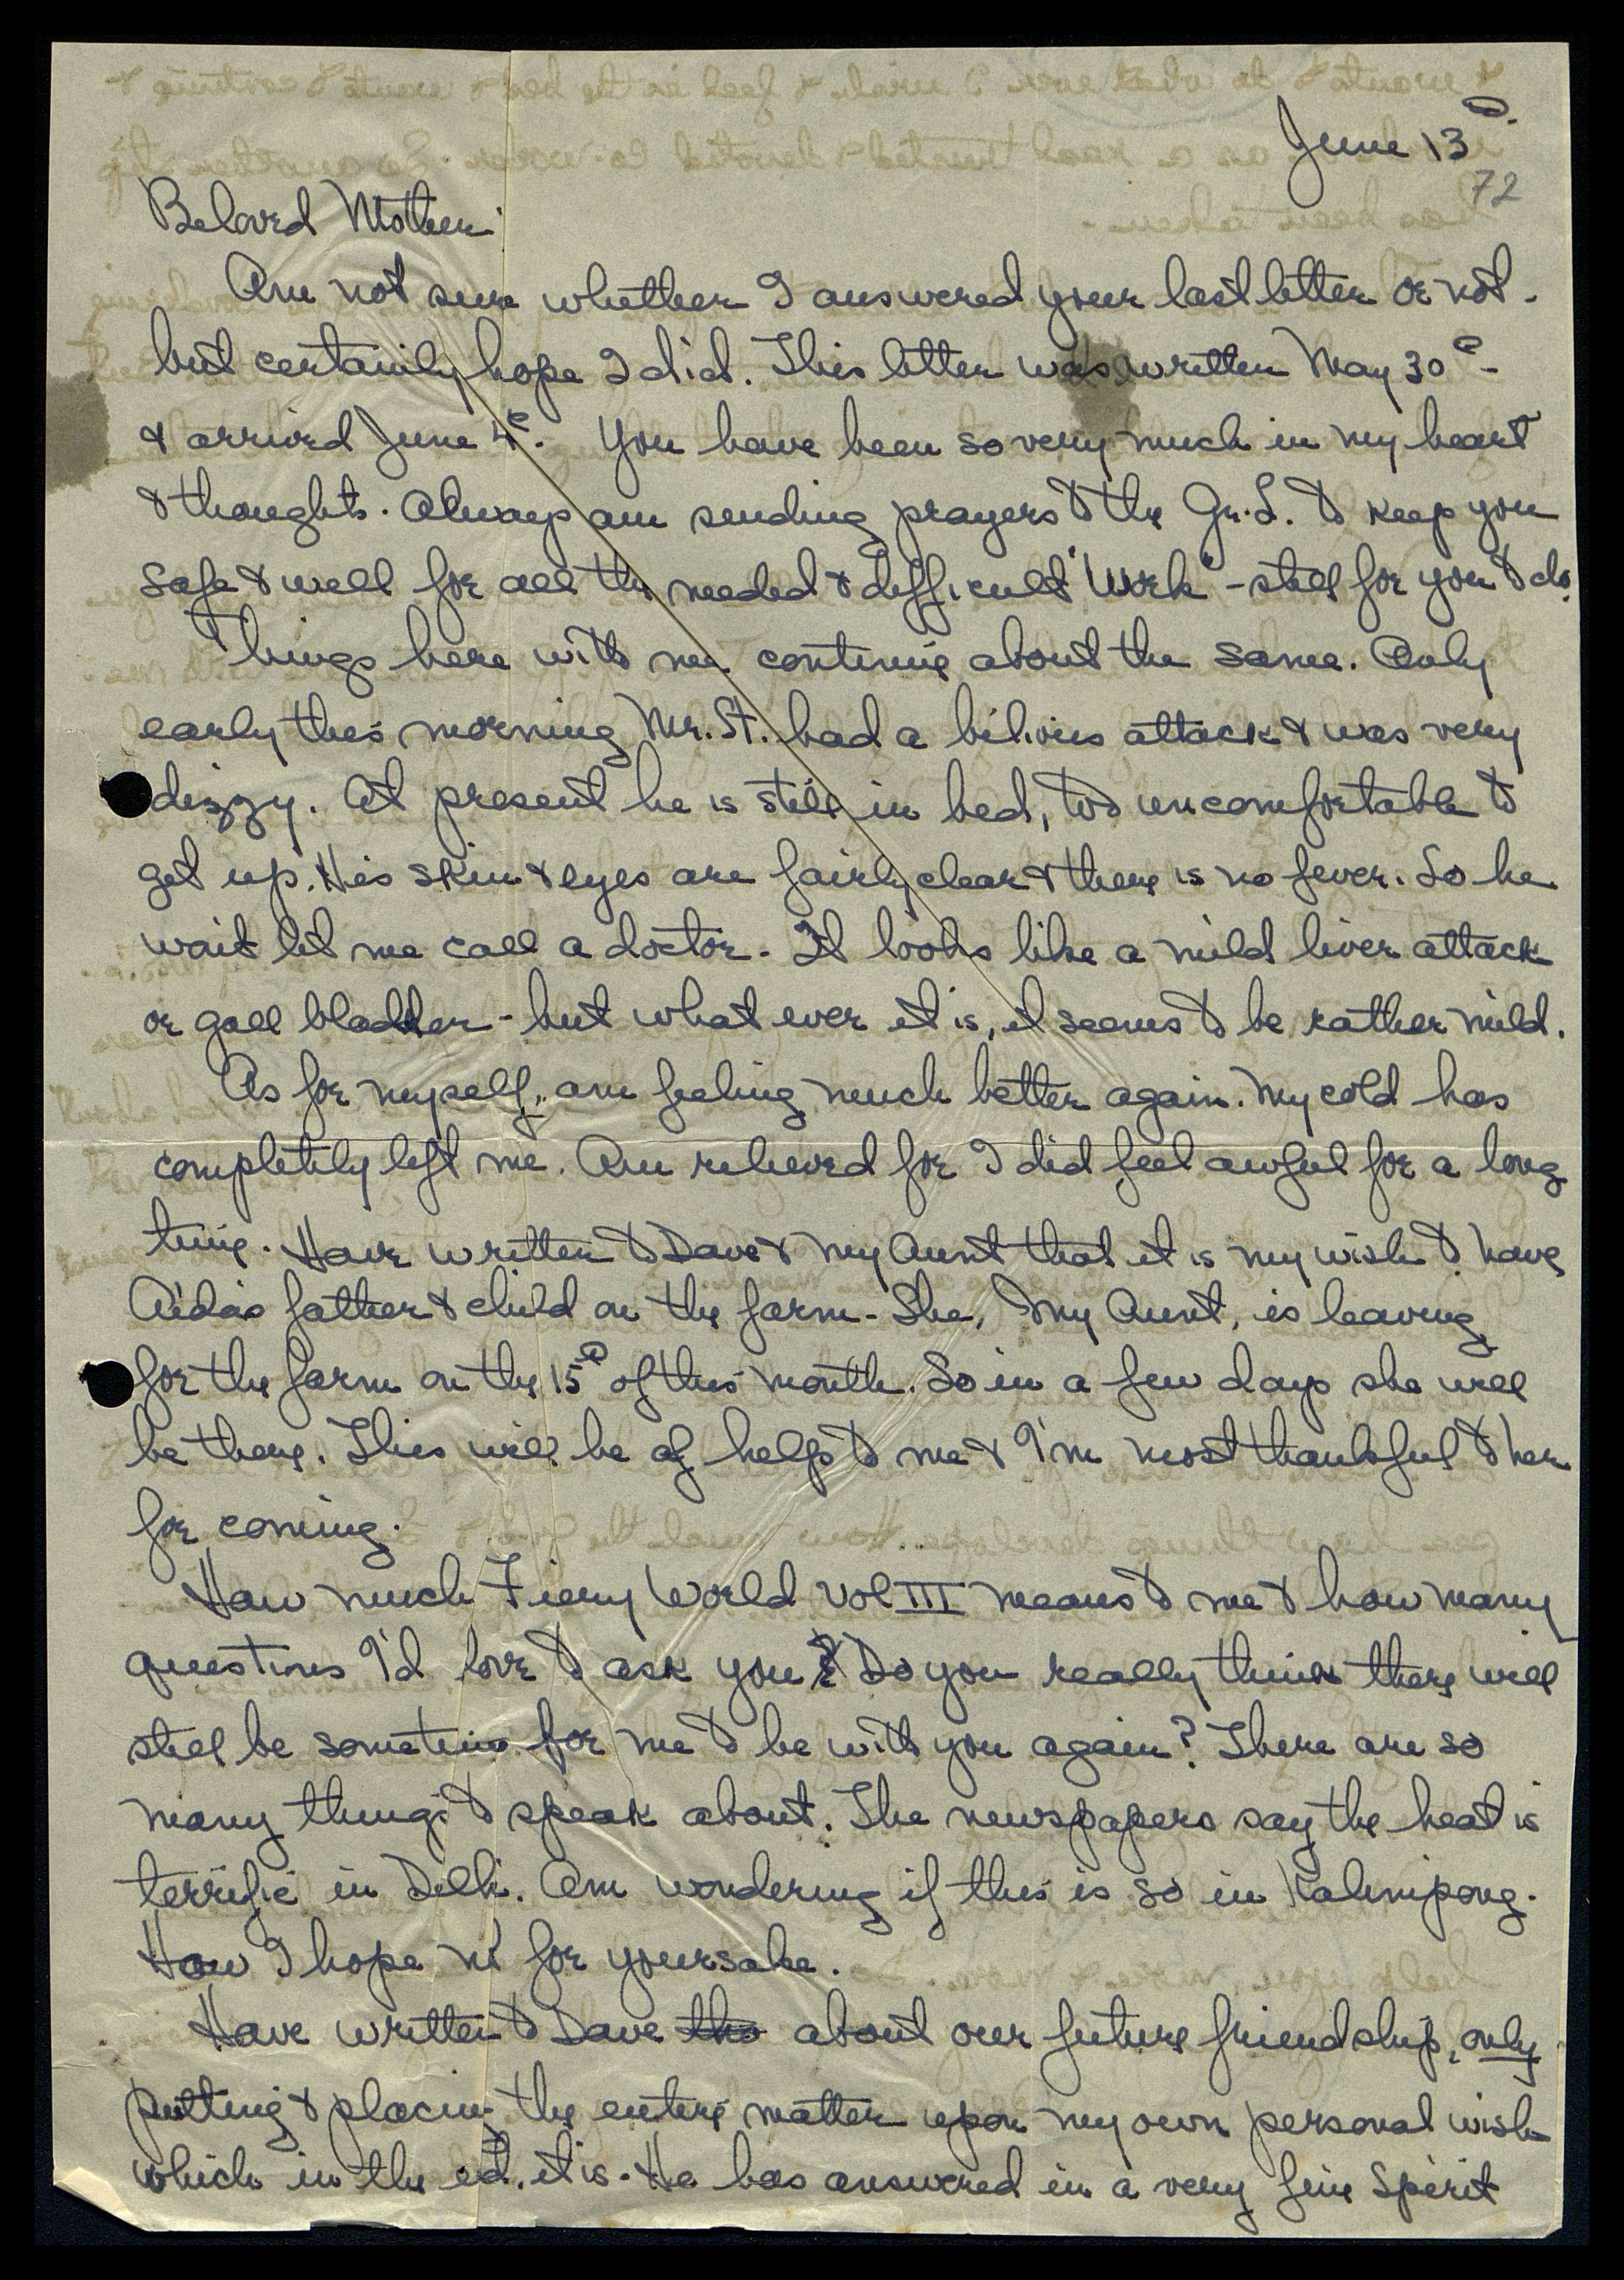 June 13th.
72
Beloved Mother:
Am not sure whether I answered your last letter or not.
but certainly hope I did. This letter was written May 30th -
& arrived June 4th. You have been so very much in my heart
& thoughts. Always am sending prayers to the Gr. L. to keep you
safe & well for all the needed & difficult "Work" - still for you to do.
Things here with me continue about the same. Only
early this morning Mr. St. had a bilious attack & was very
dizzy. At present he is still in bed, too uncomfortable to
get up. His skin & eyes are fairly clear & there is no fever. So he
wont let me call a doctor. It looks like a mild liver attack
or gall bladder - but what ever it is, it seems to be rather mild.
As for myself, am feeling much better again. My cold has
completely left me. Am relieved for I did feel awful for a long
time. Have written to Dave & my Aunt that it is my wish to have
Aida's father & child on the farm - She, my Aunt, is leaving
for the farm on the 15th of this month. So in a few days she will
be there. This will be of help to me & I'm most thankful to her
for coming.
How much Fiery World Vol III means to me & how many
questions I'd love to ask you. Do you really think there will
still be sometime for me to be with you again? There are so
many things to speak about. The newspapers say the heat is
terrific in Delhi. Am wondering if this is so in Kalimpong.
How I hope not for your sake.
Have written to Dave tho about our future friendship, only
putting & placing the entire matter upon my own personal wish
which in the end, it is. He has answered in a very fine Spirit